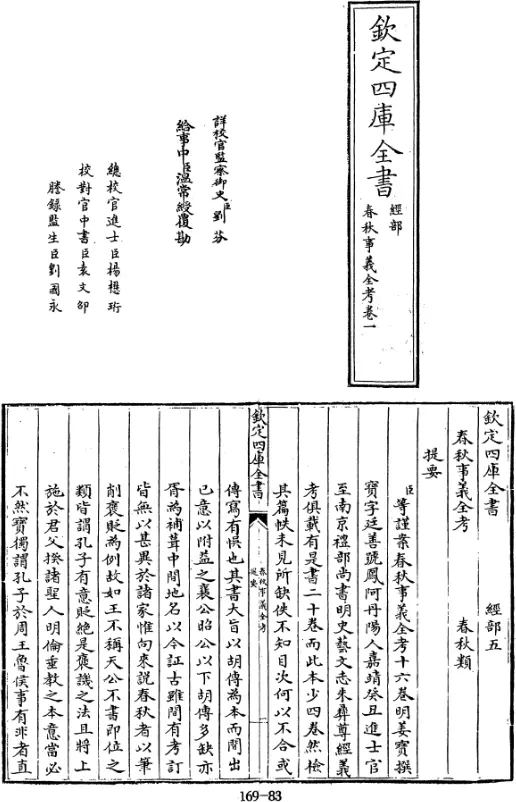 欽定四庫全書
經部
春秋事義全考卷一
詳校官監察御史臣劉芬
給事中臣溫常綬覆勘
總校官進士臣楊懋珩
校對官中書臣袁文邵
謄錄監生臣劉國永
欽定四庫全書 經部五
春秋事義全考 春秋類
提要
臣等謹案春秋事義全考十六卷明姜寶撰
寶字廷善號鳳阿丹陽人嘉靖癸丑進士官
至南京禮部尚書明史藝文志朱彝尊經義
考俱載有是書二十卷而此本少四卷然檢
其篇帙未見所缺佚不知目次何以不合或
欽定四庫全書
春秋事義全考
提要
傳寫有悞也其書大旨以胡傳為本而間出
已意以附益之襄公昭公以下胡傳多缺亦
胥為補葺中間地名以今証古雖間有考訂
皆無以甚異於諸家惟向來說春秋者以筆
削褒貶為例故如王不稱天公不書即位之
類皆謂孔子有意貶絶是褒譏之法且將上
施於君父揆諸聖人明倫垂教之本意當必
不然寶獨謂孔子於周王魯侯事有非者直
169-83